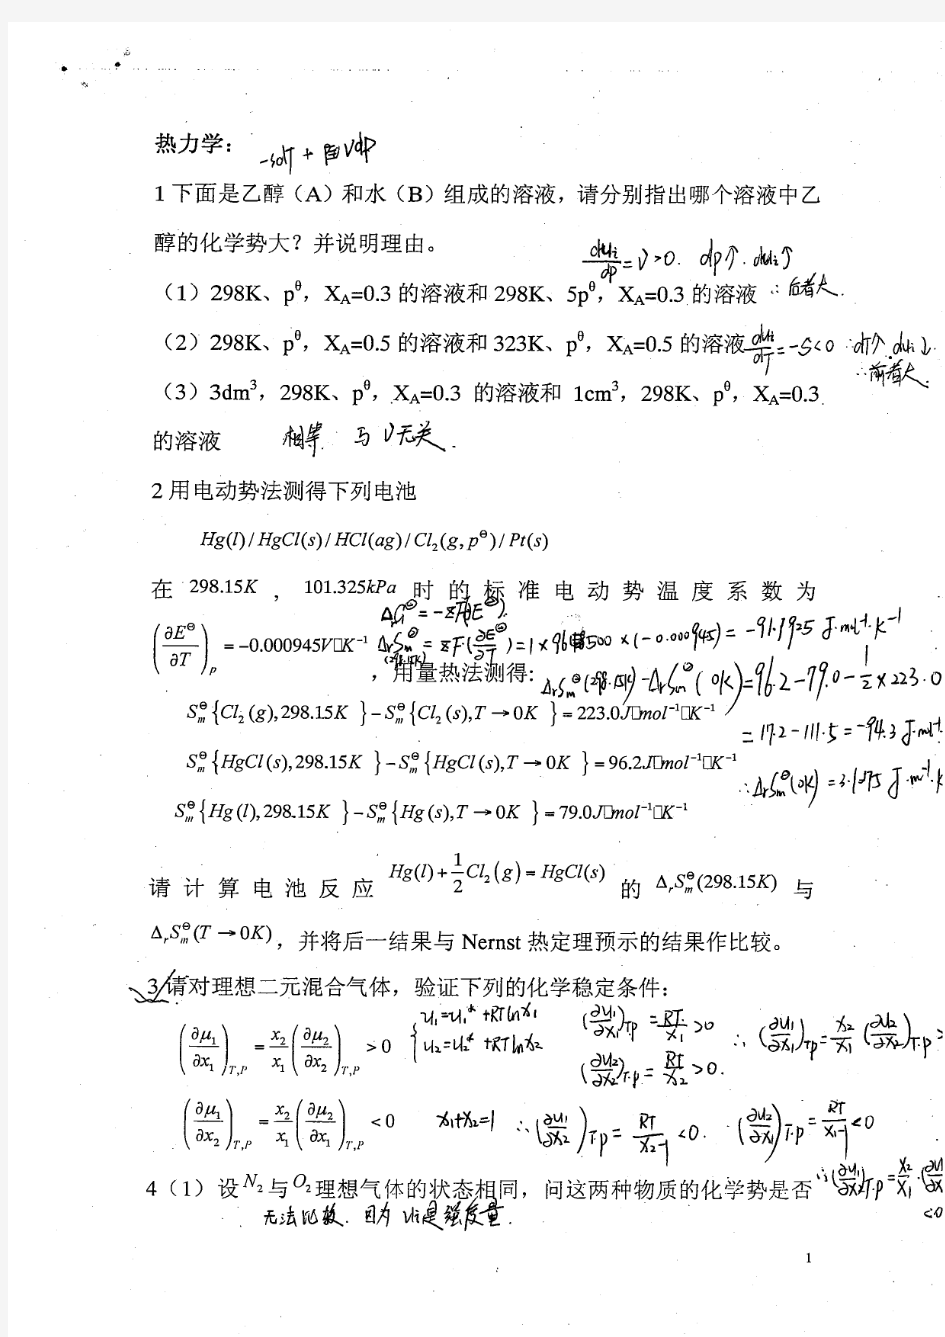 热力学：
-sdT + Vdp
1 下面是乙醇（A）和水（B）组成的溶液，请分别指出哪个溶液中乙
醇的化学势大？并说明理由。
dμi/dp = V>0. dp↑. dμi↑
（1）298K、pθ，XA=0.3 的溶液和 298K、5pθ，XA=0.3 的溶液 ∴后者大.
（2）298K、pθ，XA=0.5 的溶液和 323K、pθ，XA=0.5 的溶液 dμi/dT = -S<0 ∴dT↑.dμi↓.
∴前者大.
（3）3dm³，298K、pθ，XA=0.3 的溶液和 1cm³，298K、pθ，XA=0.3
的溶液 相等. 与V无关.
2 用电动势法测得下列电池
Hg(l)/HgCl(s)/HCl(ag)/Cl₂(g,p⊖)/Pt(s)
在 298.15K ，101.325kPa 时的标准电动势温度系数为
ΔG⊖=-zFE⊖.
(∂E⊖/∂T)p = -0.000945V□K⁻¹ ΔrSm⊖(298.15K) = zF(∂E⊖/∂T) = 1×96500×(-0.000945) = -91.1925 J·mol⁻¹·K⁻¹
，用量热法测得: ΔrSm⊖(298.15K)-ΔrSm⊖(0K)=96.2-79.0-1/2×223.0
Sm⊖{Cl₂(g),298.15K}-Sm⊖{Cl₂(s),T→0K}=223.0J□mol⁻¹□K⁻¹
=17.2-111.5=-94.3 J·mol⁻¹
Sm⊖{HgCl(s),298.15K}-Sm⊖{HgCl(s),T→0K}=96.2J□mol⁻¹□K⁻¹
∴ΔrSm⊖(0K)=3.1075 J·m⁻¹·k
Sm⊖{Hg(l),298.15K}-Sm⊖{Hg(s),T→0K}=79.0J□mol⁻¹□K⁻¹
请计算电池反应 Hg(l)+1/2Cl₂(g)=HgCl(s) 的 ΔrSm⊖(298.15K) 与
ΔrSm⊖(T→0K)，并将后一结果与 Nernst 热定理预示的结果作比较。
3 请对理想二元混合气体，验证下列的化学稳定条件：
(∂μ₁/∂x₁)T,P = x₂/x₁(∂μ₂/∂x₂)T,P > 0 {u₁=u₁*+RTlnx₁ (∂u₁/∂x₁)Tp = RT/x₁ >0 ∴(∂u₁/∂x₁)Tp = x₂/x₁(∂u₂/∂x₂)T.p>
u₂=u₂*+RTlnx₂ (∂u₂/∂x₂)T.p. = RT/x₂ >0.
(∂μ₁/∂x₂)T,P = x₂/x₁(∂μ₂/∂x₁)T,P < 0 x₁+x₂=1 ∴(∂u₁/∂x₂)Tp = RT/(x₂-1) <0. (∂u₂/∂x₁)T.p = RT/(x₁-1) <0
4（1）设 N₂ 与 O₂ 理想气体的状态相同，问这两种物质的化学势是否 ∴(∂u₁/∂x₂)T.p = x₂/x₁·(∂u/∂x
<0
无法比较. 因为ui是强度量.
1